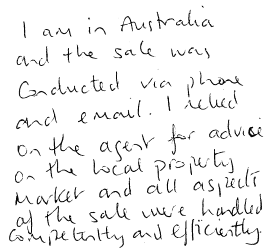 I am in Australia
and the sale was
conducted via phone
and email. I relied
on the agent for advice
on the local property
market and all aspects
of the sale were handled
competently and efficiently.